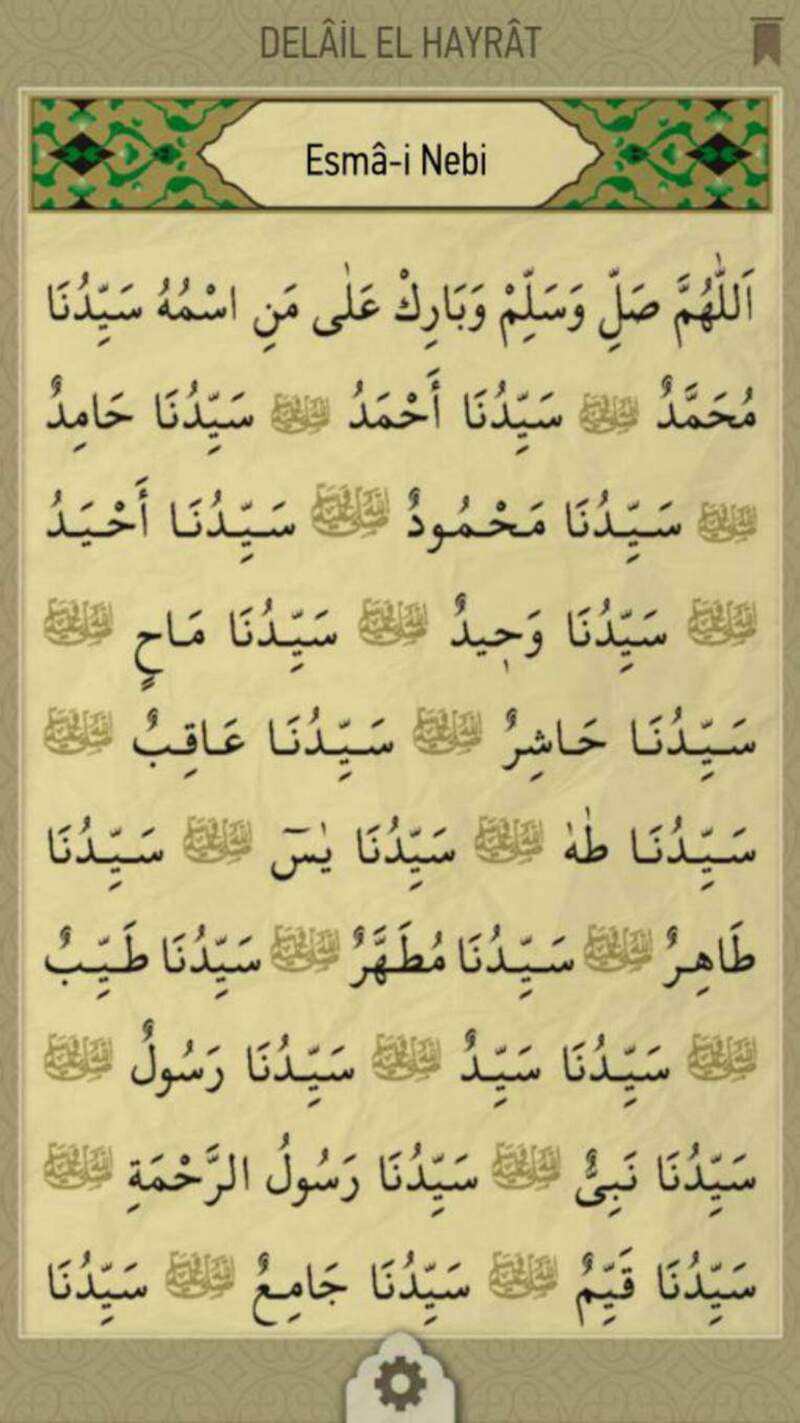 DELÂİL EL HAYRÂT
Esmâ-i Nebi
اَللّٰهُمَّ صَلِّ وَسَلِّمْ وَبَارِكْ عَلٰى مَنِ اسْمُهُ سَيِّدُنَا
مُحَمَّدٌ ﷺ سَيِّدُنَا أَحْمَدُ ﷺ سَيِّدُنَا حَامِدٌ
ﷺ سَيِّدُنَا مَحْمُودٌ ﷺ سَيِّدُنَا أَحْيَدُ
ﷺ سَيِّدُنَا وَحٖيدٌ ﷺ سَيِّدُنَا مَاحٍ ﷺ
سَيِّدُنَا حَاشِرٌ ﷺ سَيِّدُنَا عَاقِبٌ ﷺ
سَيِّدُنَا طٰهٰ ﷺ سَيِّدُنَا يٰسٓ ﷺ سَيِّدُنَا
طَاهِرٌ ﷺ سَيِّدُنَا مُطَهَّرٌ ﷺ سَيِّدُنَا طَيِّبٌ
ﷺ سَيِّدُنَا سَيِّدٌ ﷺ سَيِّدُنَا رَسُولٌ ﷺ
سَيِّدُنَا نَبِىٌّ ﷺ سَيِّدُنَا رَسُولُ الرَّحْمَةِ ﷺ
سَيِّدُنَا قَيِّمٌ ﷺ سَيِّدُنَا جَامِعٌ ﷺ سَيِّدُنَا